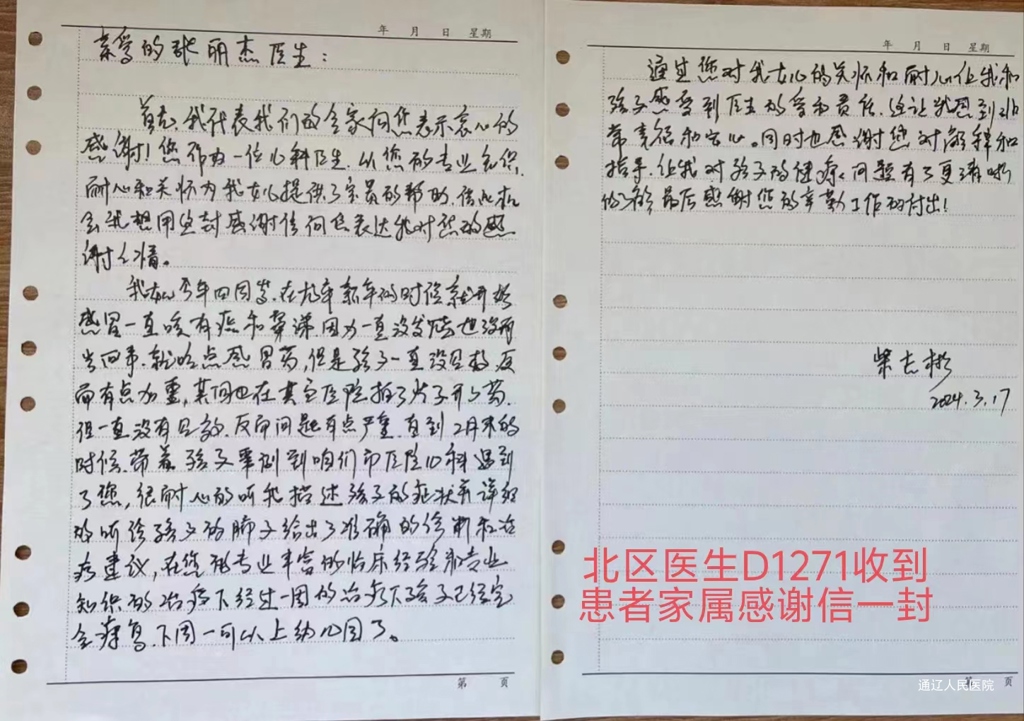 年 月 日 星期
亲爱的张丽杰医生：
首先，我代表我们的全家向您表示衷心的
感谢！您作为一位儿科医生，以您的专业知识，
耐心和关怀为我女儿提供了宝贵的帮助，借此机
会我想用这封感谢信向您表达我对您的感
谢之情。
我女儿今年四周岁，在龙年新年的时候就开始
感冒一直咳有痰和鼻涕，因为一直没发烧也没有
当回事，就吃点感冒药，但是孩子一直没见好，反
而有点加重，其间也在其它医院拍了片子开了药，
但一直没有见效，反而问题有点严重，直到2月末的
时候，带着孩子来到咱们市医院儿科遇到
了您，很耐心的听我描述孩子的症状并详细
的听诊孩子的肺子给出了准确的诊断和治
疗建议，在您那专业丰富的临床经验和专业
知识的治疗下经过一周的治疗下孩子已经完
全痊愈，下周一可以上幼儿园了。
第 页
年 月 日 星期
通过您对我女儿的关怀和耐心让我和
孩子感受到医生的爱和责任，这让我感到非
常真诚和安心。同时也感谢您对解释和
指导，让我对孩子的健康问题有了更清晰
的 最后感谢您的辛勤工作的付出！
柴志彬
2024.3.17
北区医生D1271收到
患者家属感谢信一封
第 页
通辽人民医院